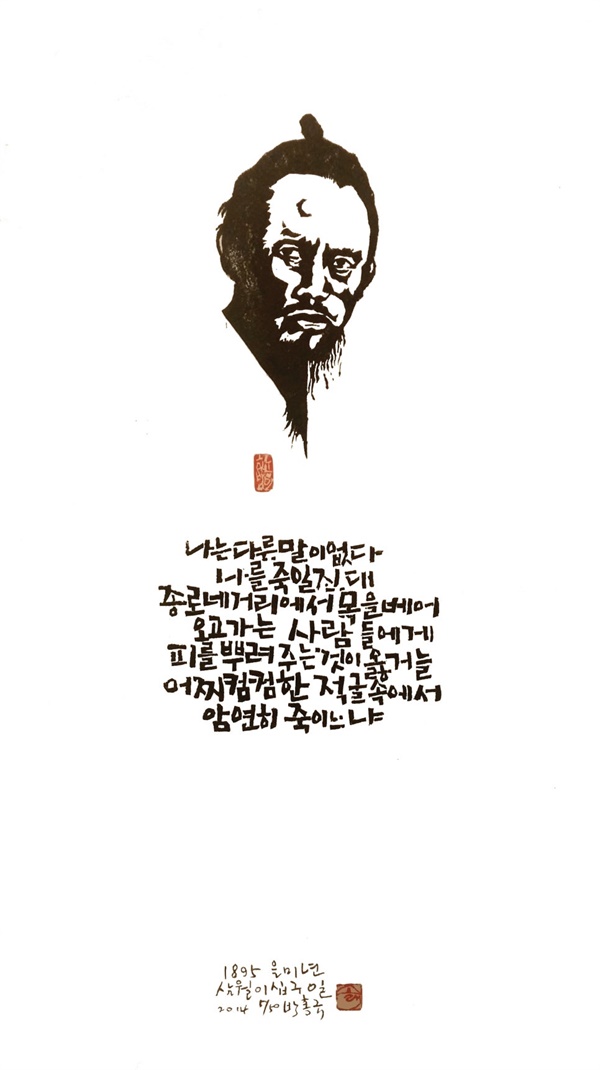 나는다른말이없다
나를죽일진대
종로네거리에서목을베어
오고가는 사람들에게
피를뿌려주는것이옳거늘
어찌컴컴한 적굴속에서
암연히 죽이느냐
1895 을미년
삼월이십구일
2014 7/50 박홍규